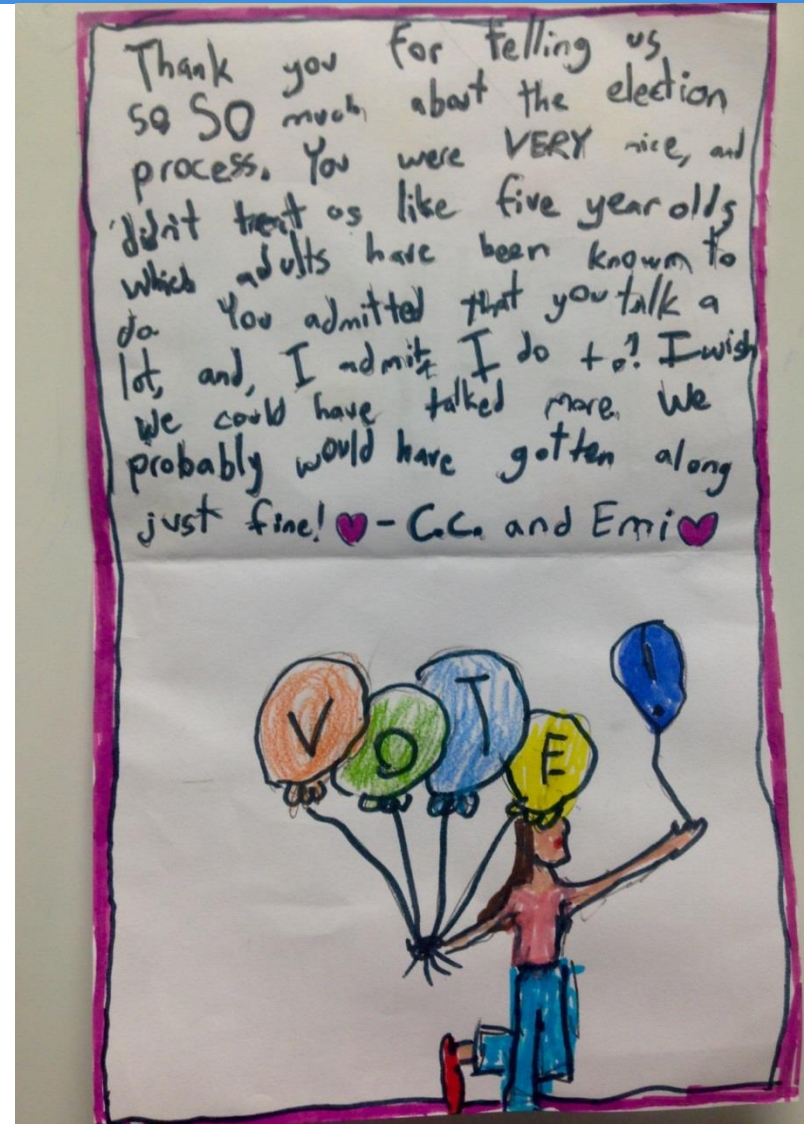 Thank you for telling us
so SO much about the election
process. You were VERY nice, and
didn't treat us like five year olds
which adults have been known to
do. You admitted that you talk a
lot, and, I admit, I do to! I wish
we could have talked more. We
probably would have gotten along
just fine! ♥ - C.C. and Emi ♥
V O T E !